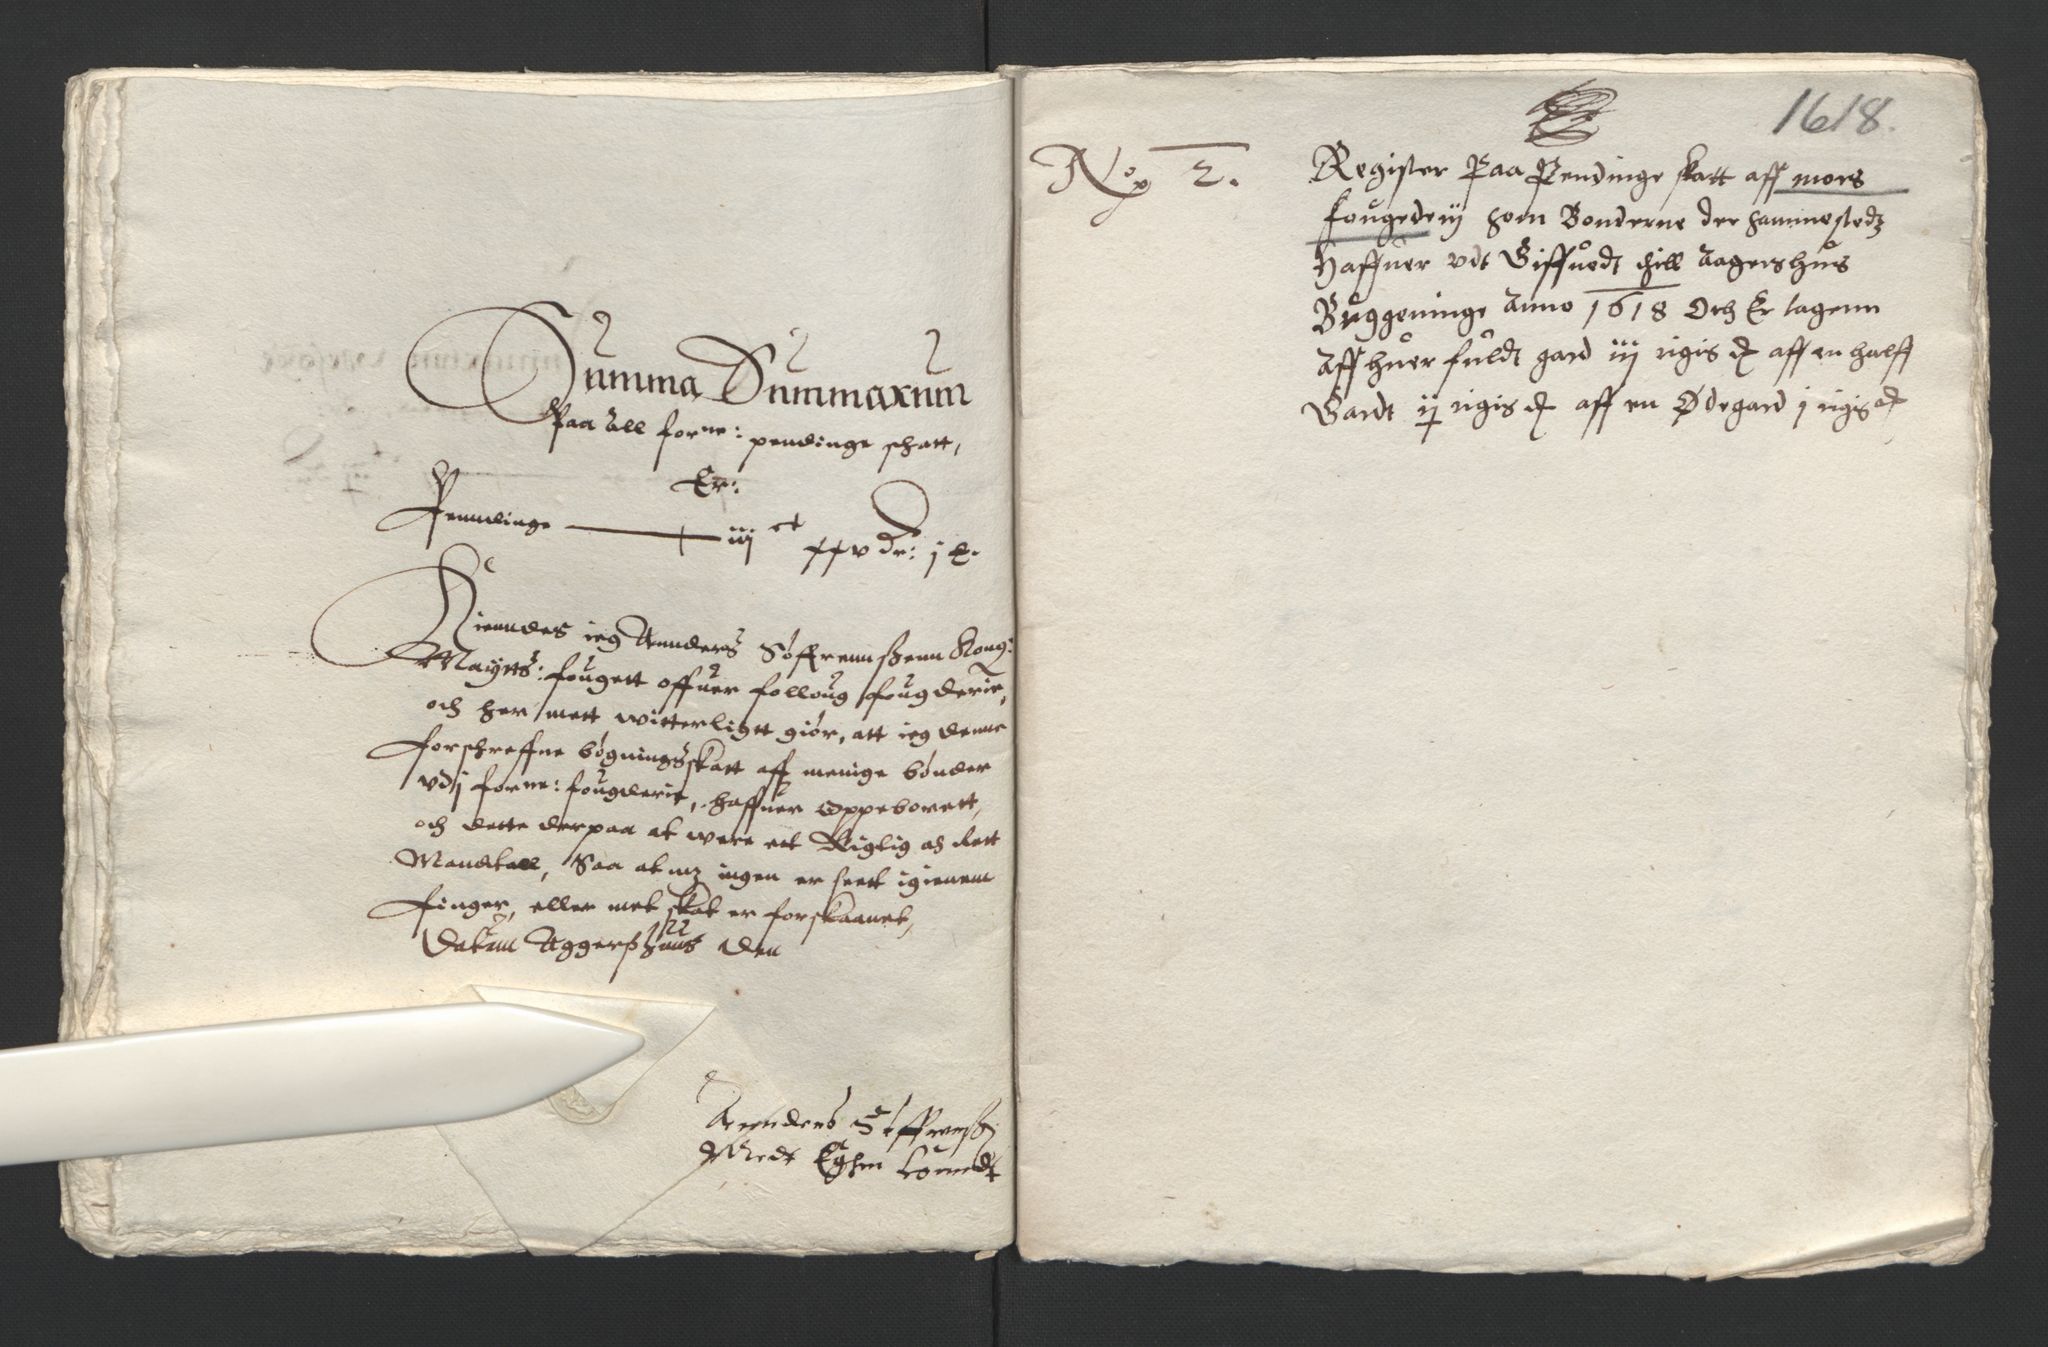 Summa Summarum
Paa all forne: pendinge schatt,
Er:
Penndinge — iij ct xxv dr: j ɮ.
Kienndes ieg Annders Søffrennßenn Kong:
Maÿtts: fougett offuer Folloug fougderie,
och her mett witterligtt giør, att ieg denne
forschreffne bøgningsskatt aff menige bønder
vdj forne: fougderie, haffuer Oppeborett,
och dette derpaa at were ett Rigtig och Rett
Mandtall, Saa at mz ingen er seett igienem
finger, eller met skat er forskaanet,
Datum Aggerßhuus den
Annders Søffrenß
Medt Eghen Handt
1618.
No 2.
Register Paa Pendinge skatt aff mors
fougederij som Bonderne der sammestedz
Haffuer vdt Giffuedt thill Aagershus
Buggeninge Anno 1618 Och Er tagenn
Aff huer fuldt gard iiij rigis d aff en halff
Gardt ij rigis d aff en Ødegard j rigis d